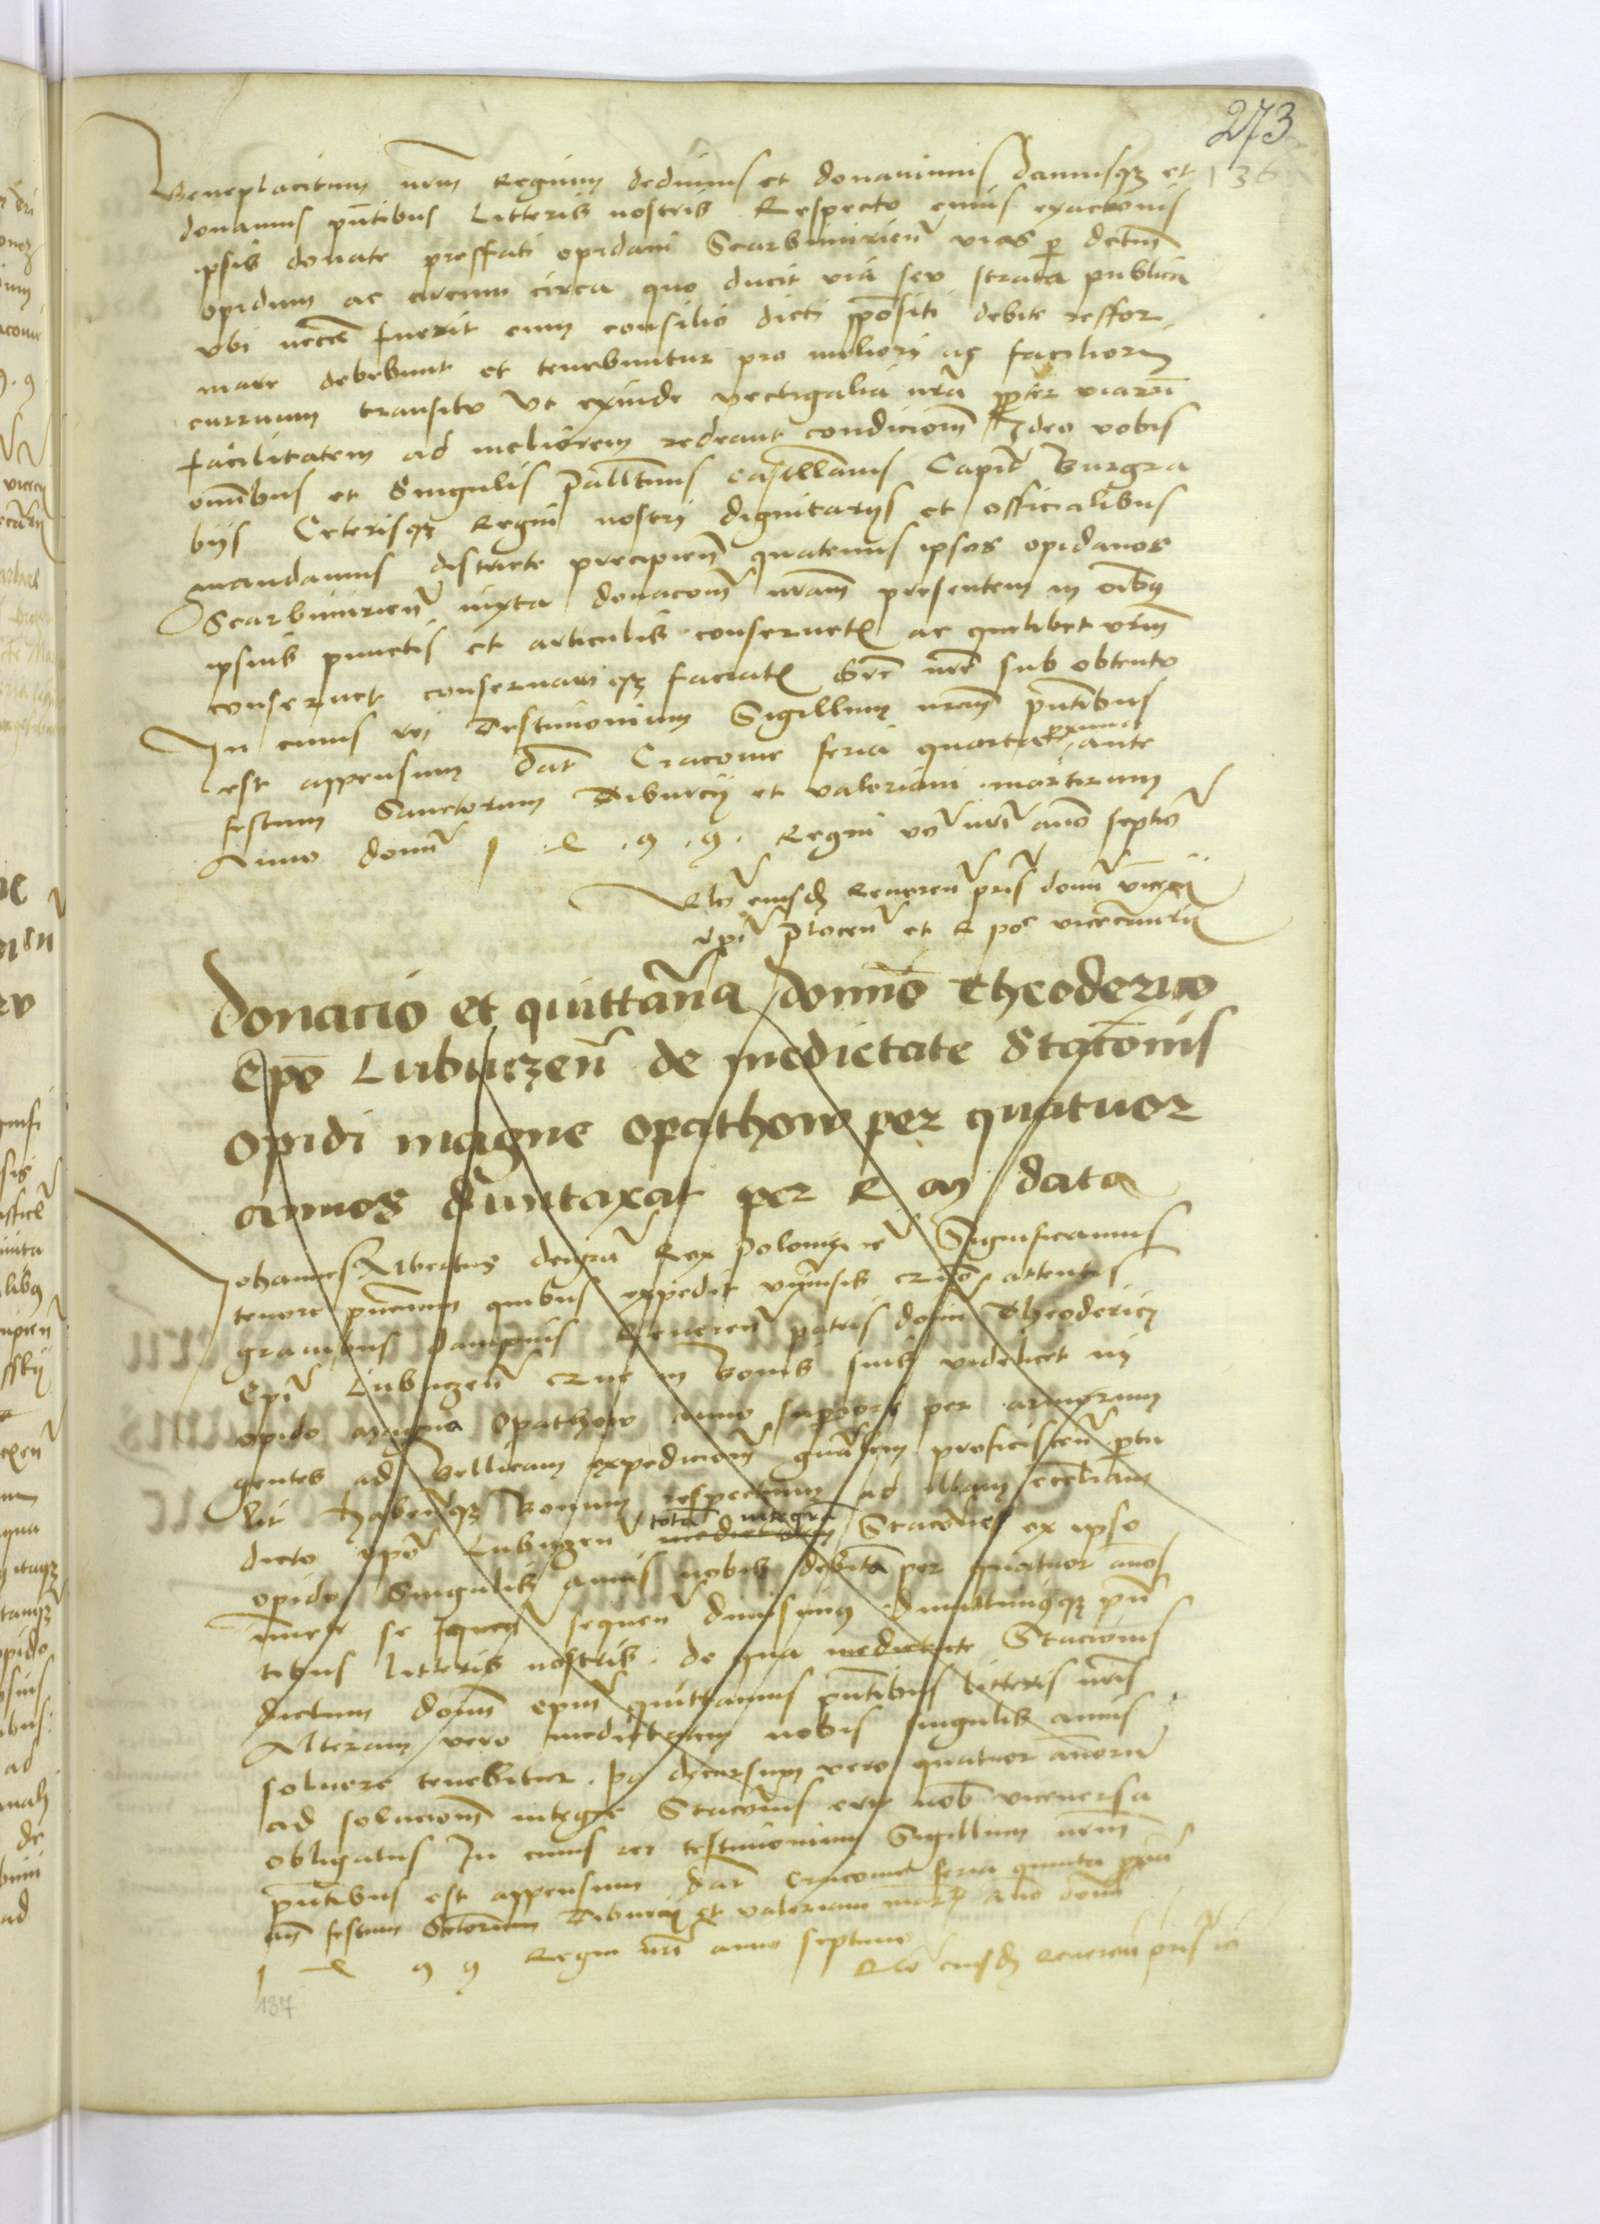 273
136
Beneplacitum nrm Regium dedimus et donauimus Damusqz et
donamus pntibus Litteris nostris Respectu cuius exactionis
ipsis donate preffati opidani Scarbimirien vias per dictum
opidum ac circum circa quo ducit via seu strata publica
vbi necesse fuerit cum consilio dicti ppositi debite reffor
mare debebunt et tenebuntur pro meliori ac faciliori
curruum transitu Vt exinde vectigalia nra ppter viarum
facilitatem ad meliorem redeant condicionem Ideo vobis
omnibus et Singulis Palltinis castellanis Capit Burgra
bijs Ceterisqz Regni nostri dignitarijs et officialibus
mandamus districte precipien quatenus ipsos opidanos
Scarbimirien iuxta donacom nram presentem in oibus
ipsius punctis et articulis conseruetis ac quilibet vrm
conseruet conseruari qz faciatis Gre nre sub obtentu
In cuius rei Testimonium Sigillum nrm pntibus
est appensum Dat Cracouie feria quarta proxima ante
festum Sanctorum Tiburcij et valeriani martirum
Anno domi 1 4 9 9 Regni vo nri ano septio
Rlo eiusdem Reueren pris domi vincen
epi Plocen et R po vicecancelrij
Donacio et quittancia domino Theoderico
Epo Lubuczen de medietate Stacionis
opidi magne opathow per quatuor
annos duntaxat per R M data
Johannes Albertus dei gra Rex Polonie etc Significamus
tenore pncium quibus expedit vniuersis etc quo attentis
grauibus dampnis Reueren patris domi Theoderici
Epi Lubuczen etc que in bonis suis videlicet in
opido Magna Opathow anno supiori per armorum
gentes ad bellicam expedicionem gnalem proficiscen ptu
lit Habenqz bonum respectum ad illam eccliam
dicto epo Lubuczen medietatem tota integra Stacones ex ipso
opido Singulis annis nobis debita per quatuor annos
inmedi se sequen sequen dimisimus dimittimusqz pn
tibus litteris nostris de qua medietate Stacionis
dictum domi epm quittamus pntibus litteris nris
Alteram vero medietatem nobis singulis annis
soluere tenebitur. Post decursum vero quatuor annoru
ad solucionem integre Staconis erit nob viceuersa
obligatus In cuius rei testimonium Sigillum nrm
pntibus est appensum Dat Cracouie feria quinta proxa
an festum Sctorum Tiburcij et valeriani mart Ano domi
1 4 9 9 Regni nri anno septimo
Rlo eiusdem Reueren pris etc
137